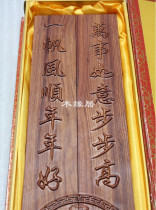 萬事如意步步高
一帆風順年年好
木緣居